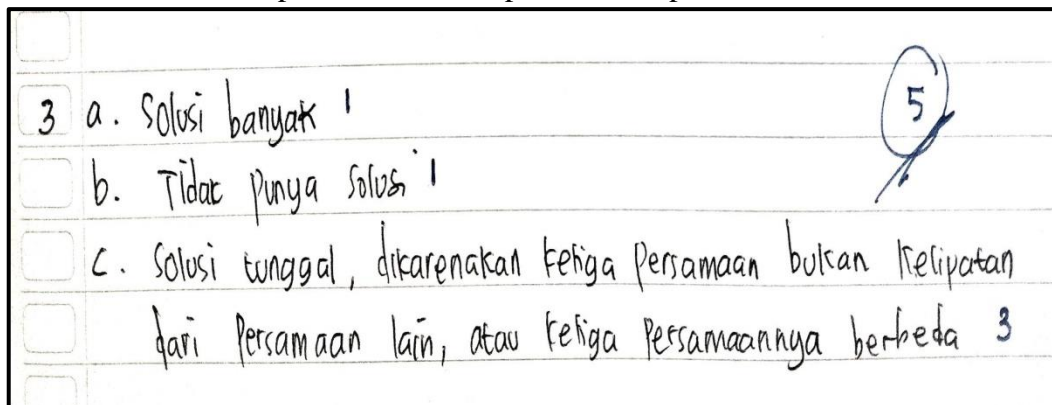 3 a. Solusi banyak 1
5
b. Tidak punya solusi 1
c. Solusi tunggal, dikarenakan ketiga Persamaan bukan kelipatan
dari Persamaan lain, atau ketiga Persamaannya berbeda 3